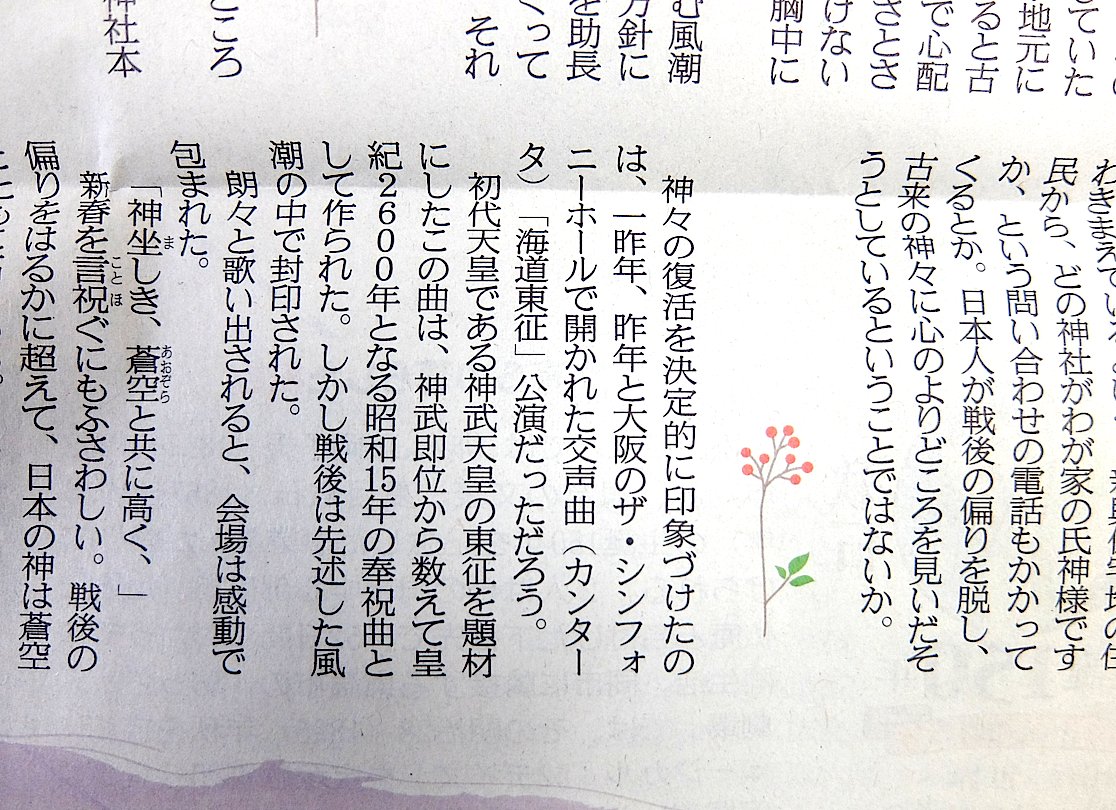 む風潮
方針に
を助長
くって
それ
ころ
神社本
ていた
地元に
ると古
で心配
さとさ
けない
胸中に
民から、どの神社がわが家の氏神様です
か、という問い合わせの電話もかかって
くるとか。日本人が戦後の偏りを脱し、
古来の神々に心のよりどころを見いだそ
うとしているということではないか。
神々の復活を決定的に印象づけたの
は、一昨年、昨年と大阪のザ・シンフォ
ニーホールで開かれた交声曲（カンター
タ）「海道東征」公演だっただろう。
初代天皇である神武天皇の東征を題材
にしたこの曲は、神武即位から数えて皇
紀2600年となる昭和15年の奉祝曲と
して作られた。しかし戦後は先述した風
潮の中で封印された。
朗々と歌い出されると、会場は感動で
包まれた。
「神坐ましき、蒼空あおぞらと共に高く、」
新春を言祝ことほぐにもふさわしい。戦後の
偏りをはるかに超えて、日本の神は蒼空